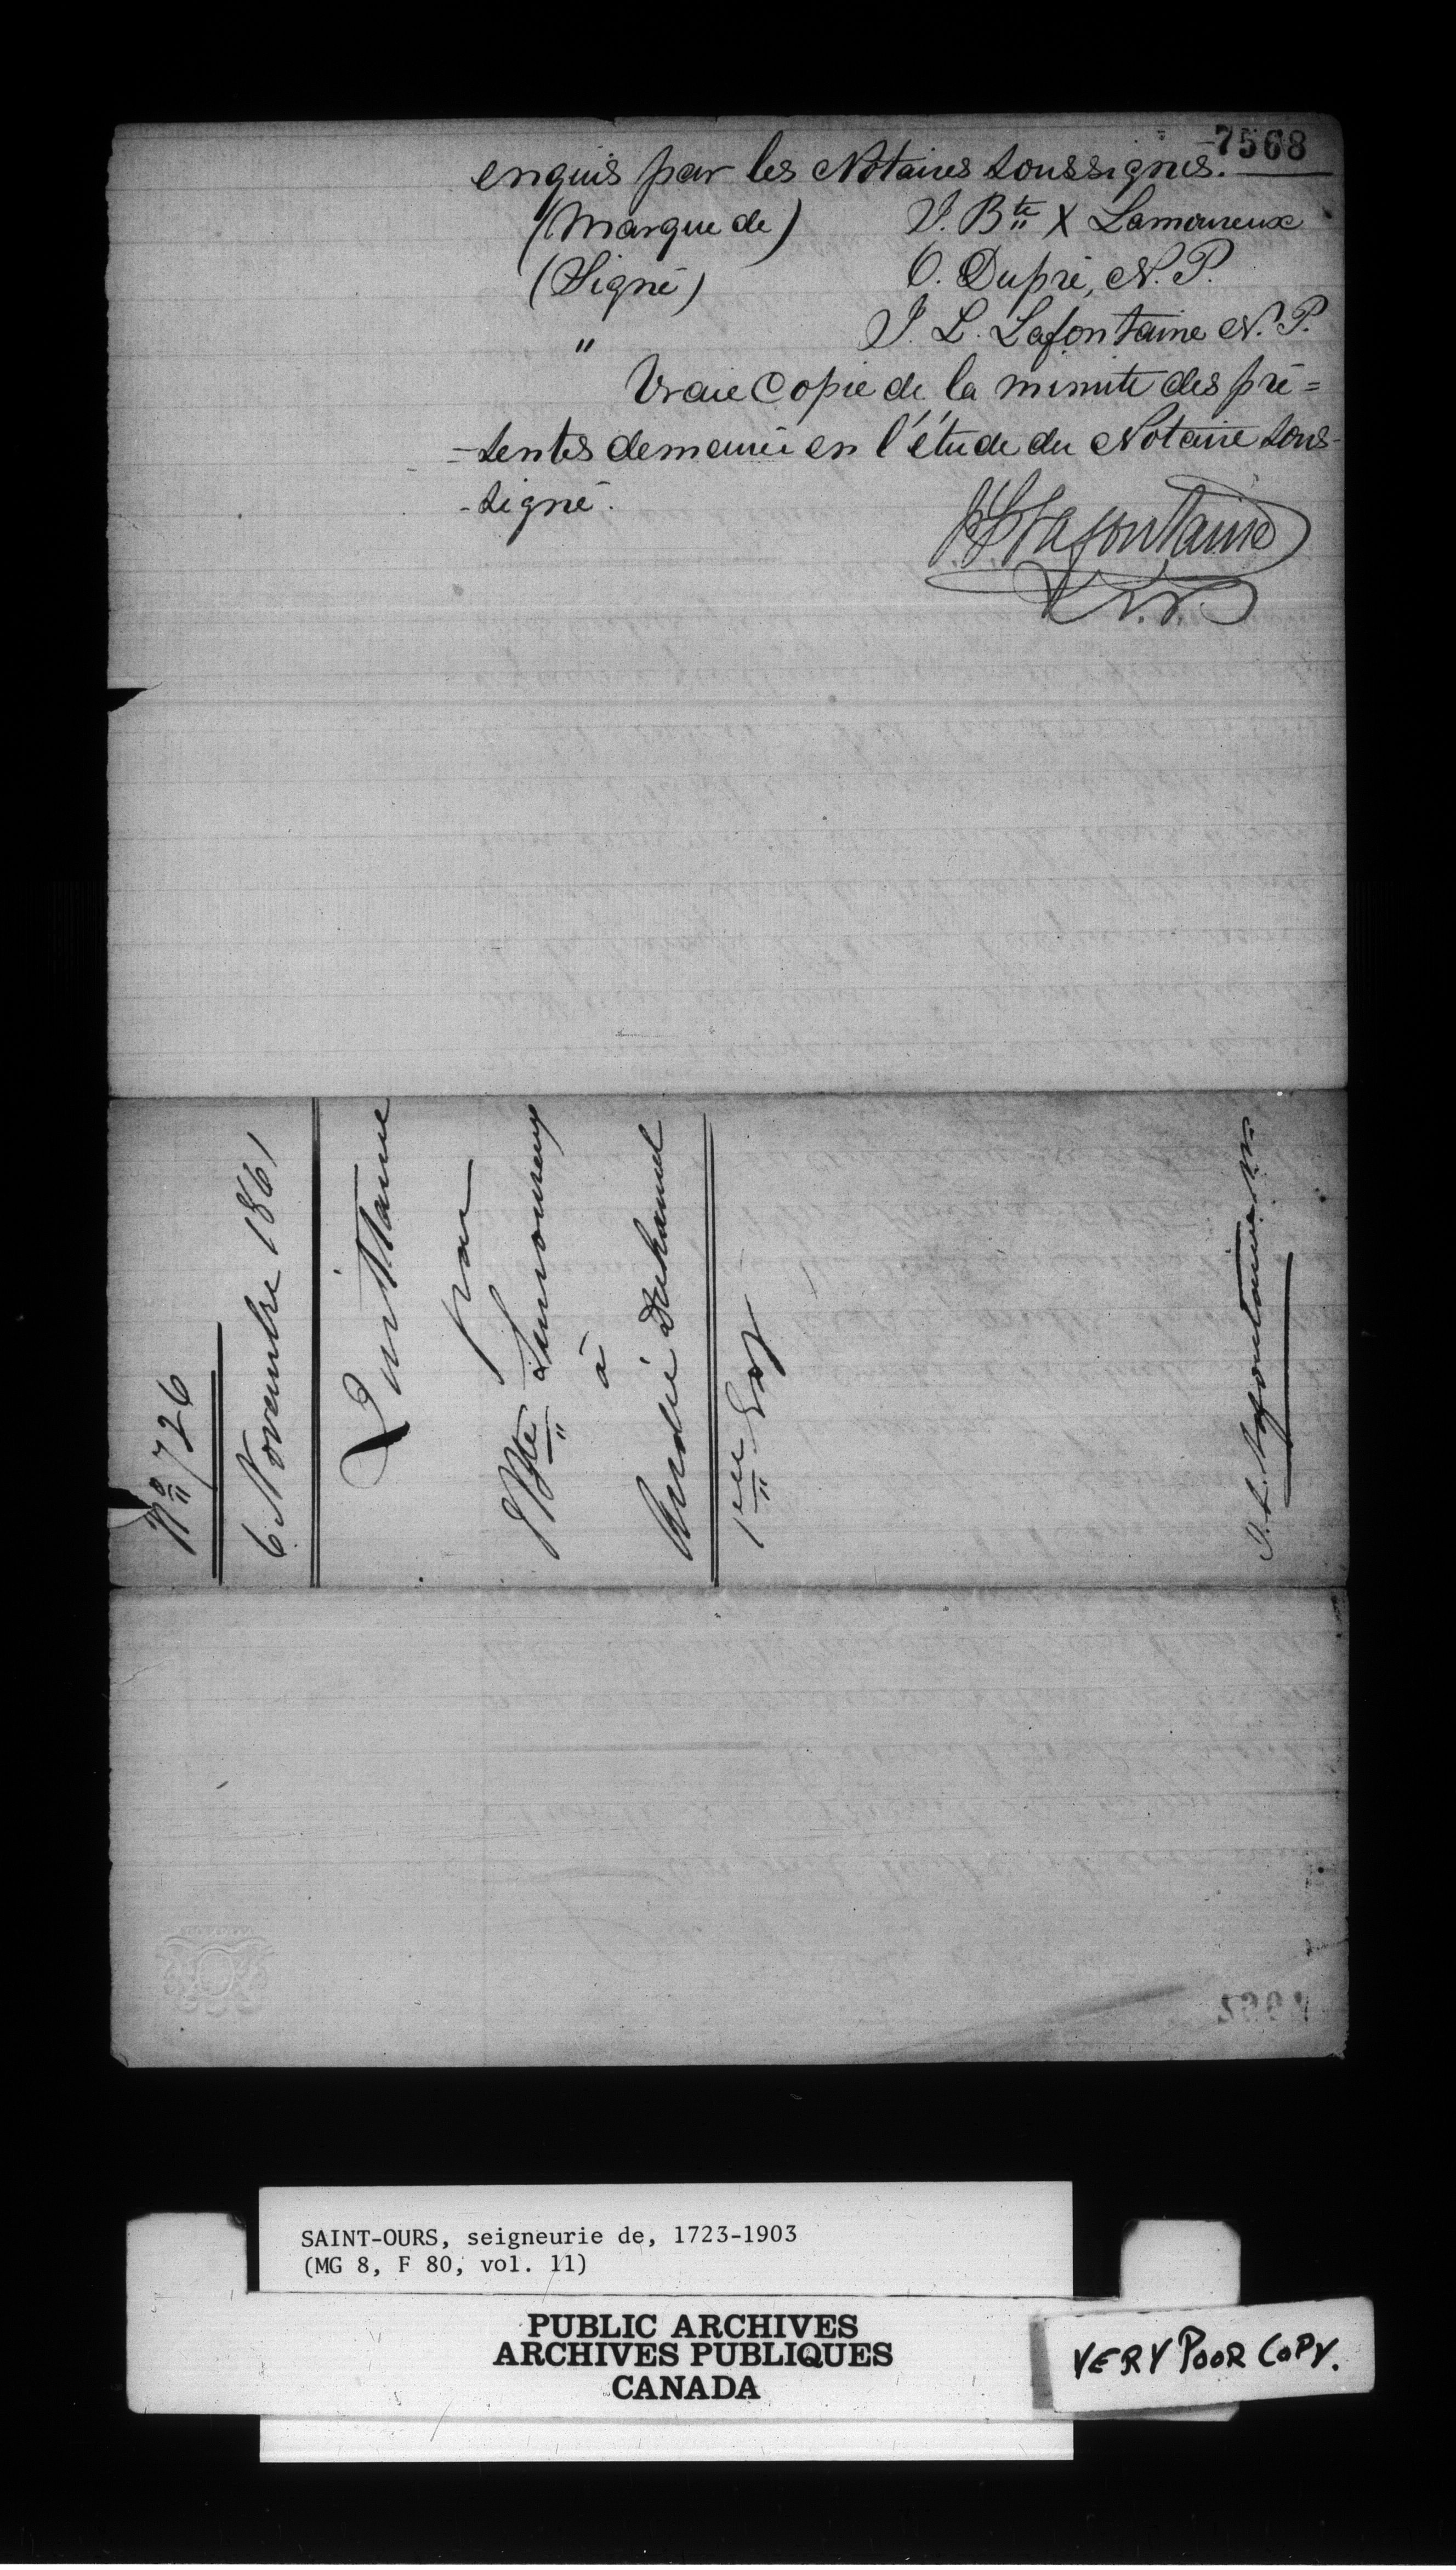 7568
enquis par les Notaires soussignés.
(Marque de) J. Bte X Lamoureux
(Signé) O. Dupré, N. P.
" J. L. Lafontaine N. P.
Vraie Copie de la minute des pré=
=sentes demeurée en l'étude du Notaire sous-
-signé.
J L Lafontaine
N. P.
No 726
6 Novembre 1861
Quittance
par
J Bte Lamoureux
à
André Duhamel
1ere Exp
J. L. Lafontaine N.P.
SAINT-OURS, seigneurie de, 1723-1903
(MG 8, F 80, vol. 11)
PUBLIC ARCHIVES
ARCHIVES PUBLIQUES
CANADA
VERY POOR COPY.